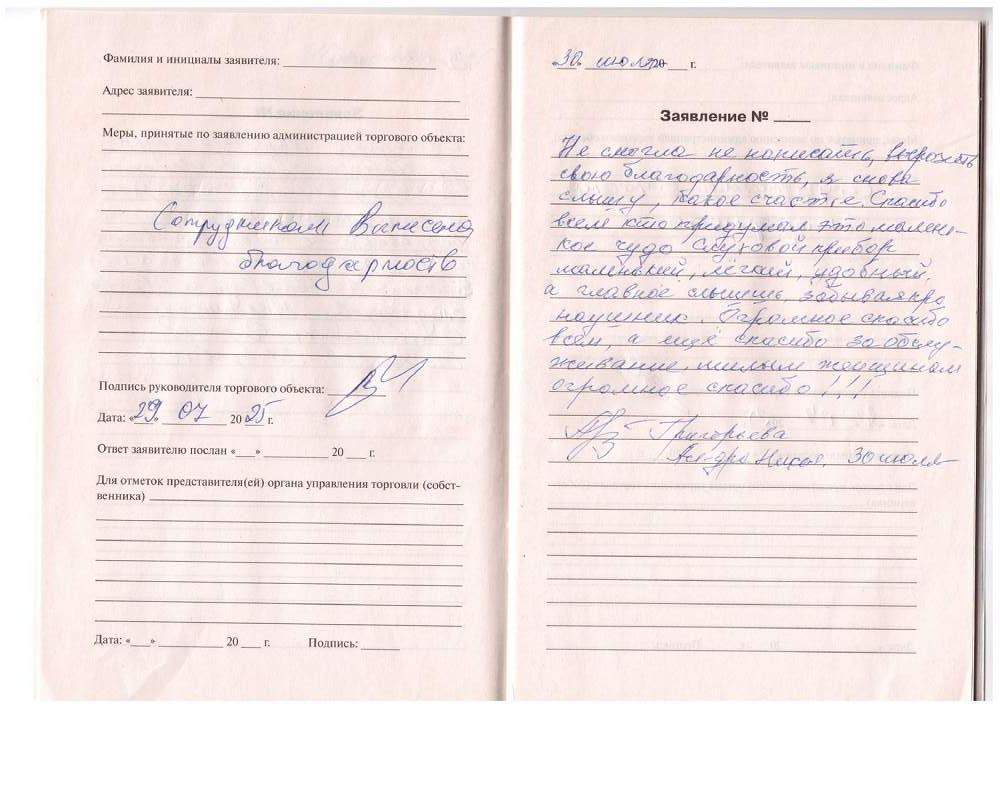 Фамилия и инициалы заявителя:
Адрес заявителя:
Меры, принятые по заявлению администрацией торгового объекта:
Сотрудникам Вынесена
благодарность
Подпись руководителя торгового объекта:
Дата: «29» 07 20 25 г.
Ответ заявителю послан «___» ________ 20 ___ г.
Для отметок представителя(ей) органа управления торговли (собст-
венника)
Дата: «___» ________ 20 ___ г. Подпись: ______
«30» июля 20 ___ г.
Заявление № ____
Не смогла не написать, выразить
свою благодарность, я снова
слышу, такое счастье. Спасибо
всем кто придумал это малень-
кое чудо Слуховой прибор
маленький, лёгкий, удобный.
а главное слышишь, забывая про
наушник. Огромное спасибо
всем, а ещё спасибо за обслу-
живание, милым женщинам
огромное спасибо !!!
Григорьева
30 июля